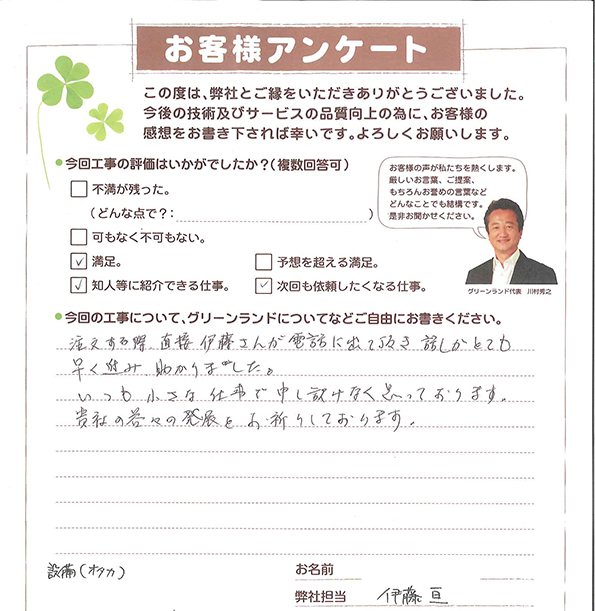 お客様アンケート
この度は、弊社とご縁をいただきありがとうございました。
今後の技術及びサービスの品質向上の為に、お客様の
感想をお書き下されば幸いです。よろしくお願いします。
●今回工事の評価はいかがでしたか？（複数回答可）
お客様の声が私たちを熱くします。
厳しいお言葉、ご提案、
もちろんお誉めの言葉など
どんなことでも結構です。
是非お聞かせください。
不満が残った。
（どんな点で？： ）
可もなく不可もない。
満足。 予想を超える満足。
知人等に紹介できる仕事。 次回も依頼したくなる仕事。
グリーンランド代表 川村秀之
●今回の工事について、グリーンランドについてなどご自由にお書きください。
注文する際、直接伊藤さんが電話に出て頂き 話しがとても
早く進み 助かりました。
いつも小さな仕事で申し訳けなく思っております。
貴社の益々の発展をお祈りしております。
設備(オタカ)
お名前
弊社担当 伊藤 亘